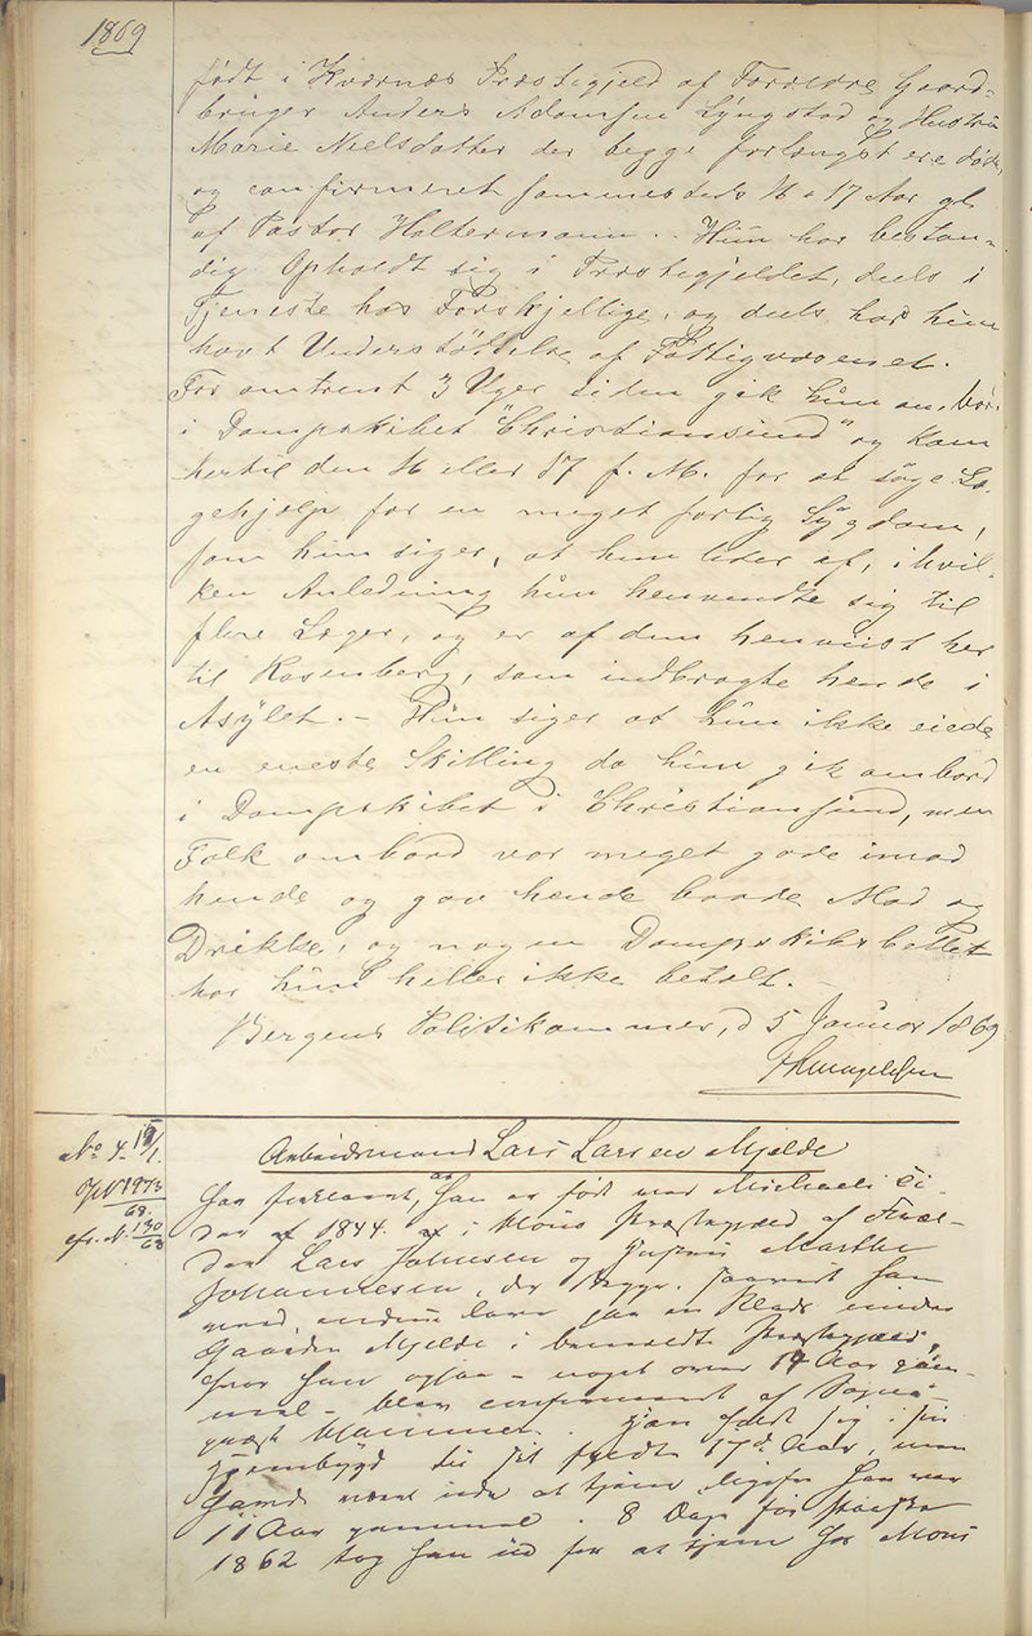 1869
født i Kvernæs Præstegjeld af Forældre Gaard-
bruger Anders Adamsen Lyngstad og Hustru
Marie Nielsdatter der begge forlængst ere døde,
og confirmeret sammesteds 16 a 17 Aar gl.
af Pastor Haltermann. Hun har bestan-
dig Opholdt sig i Præstegjeldet, deels i
Tjeneste hos Forskjellige, og deels har hun
havt Understøttelse af Fattigvæsenet.
For omtrent 3 Uger siden gik hun om bord
i Dampskibet "Christiansund" og kom
hertil den 16 eller 17 f. M. for at søge Læ-
gehjælp for en meget farlig Sygdom,
som hun siger, at hun lider af, i hvil-
ken Anledning hun henvendte sig til
flere Læger, og er af dem henviist her
til Rosenberg, som indbragte hende i
Asylet. - Hun siger at hun ikke eiede
en eneste Skilling da hun gik ombord
i Dampskibet i Christiansund, men
Folk ombord var meget gode imod
hende og gav hende baade Mad og
Drikke, og nogen Dampskibsbillet
har hun heller ikke betalt. -
Bergens Politikammer, d 5 Januar 1869
No 4. 19/1.
Arbeidsmand Lars Larsen Mjelde
1973/68.
cfr. N. 130/68
har forklaret, at han er født ved Michaeli Ti-
der af 1844 i Præstegjæld af Foræl-
dre Lars Johnsen og Hustru Marthe
Johannesen, der begge, saavidt han
veed, endnu leve paa en Plads under
Gaarden Mjelde i bemeldte Præstegjæld,
hvor han ogsaa - noget over 14 Aar gam-
mel - blev confirmeret af Sogne-
præst . Han holdt sig i sin
Hjembygd til sit fyldte 17de Aar, men
havde været ude at tjene ligefra han var
11 Aar gammel. 8 Dage før Paaske
1862 tog han ud for at tjene hos Mons